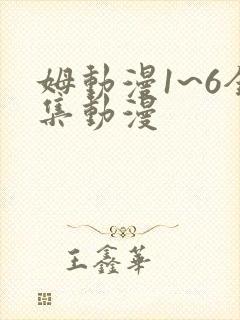 姆動漫1~6全
集動漫
王鑫華